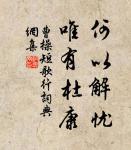 何以解忧
唯有杜康
曹操短歌行詞典
網集